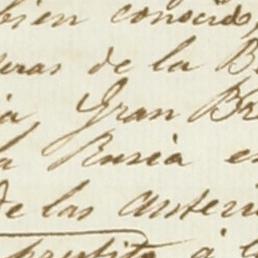 bien conocido,
eras de la B
ia Gran Br
la Rusia e
de las anteri
à l